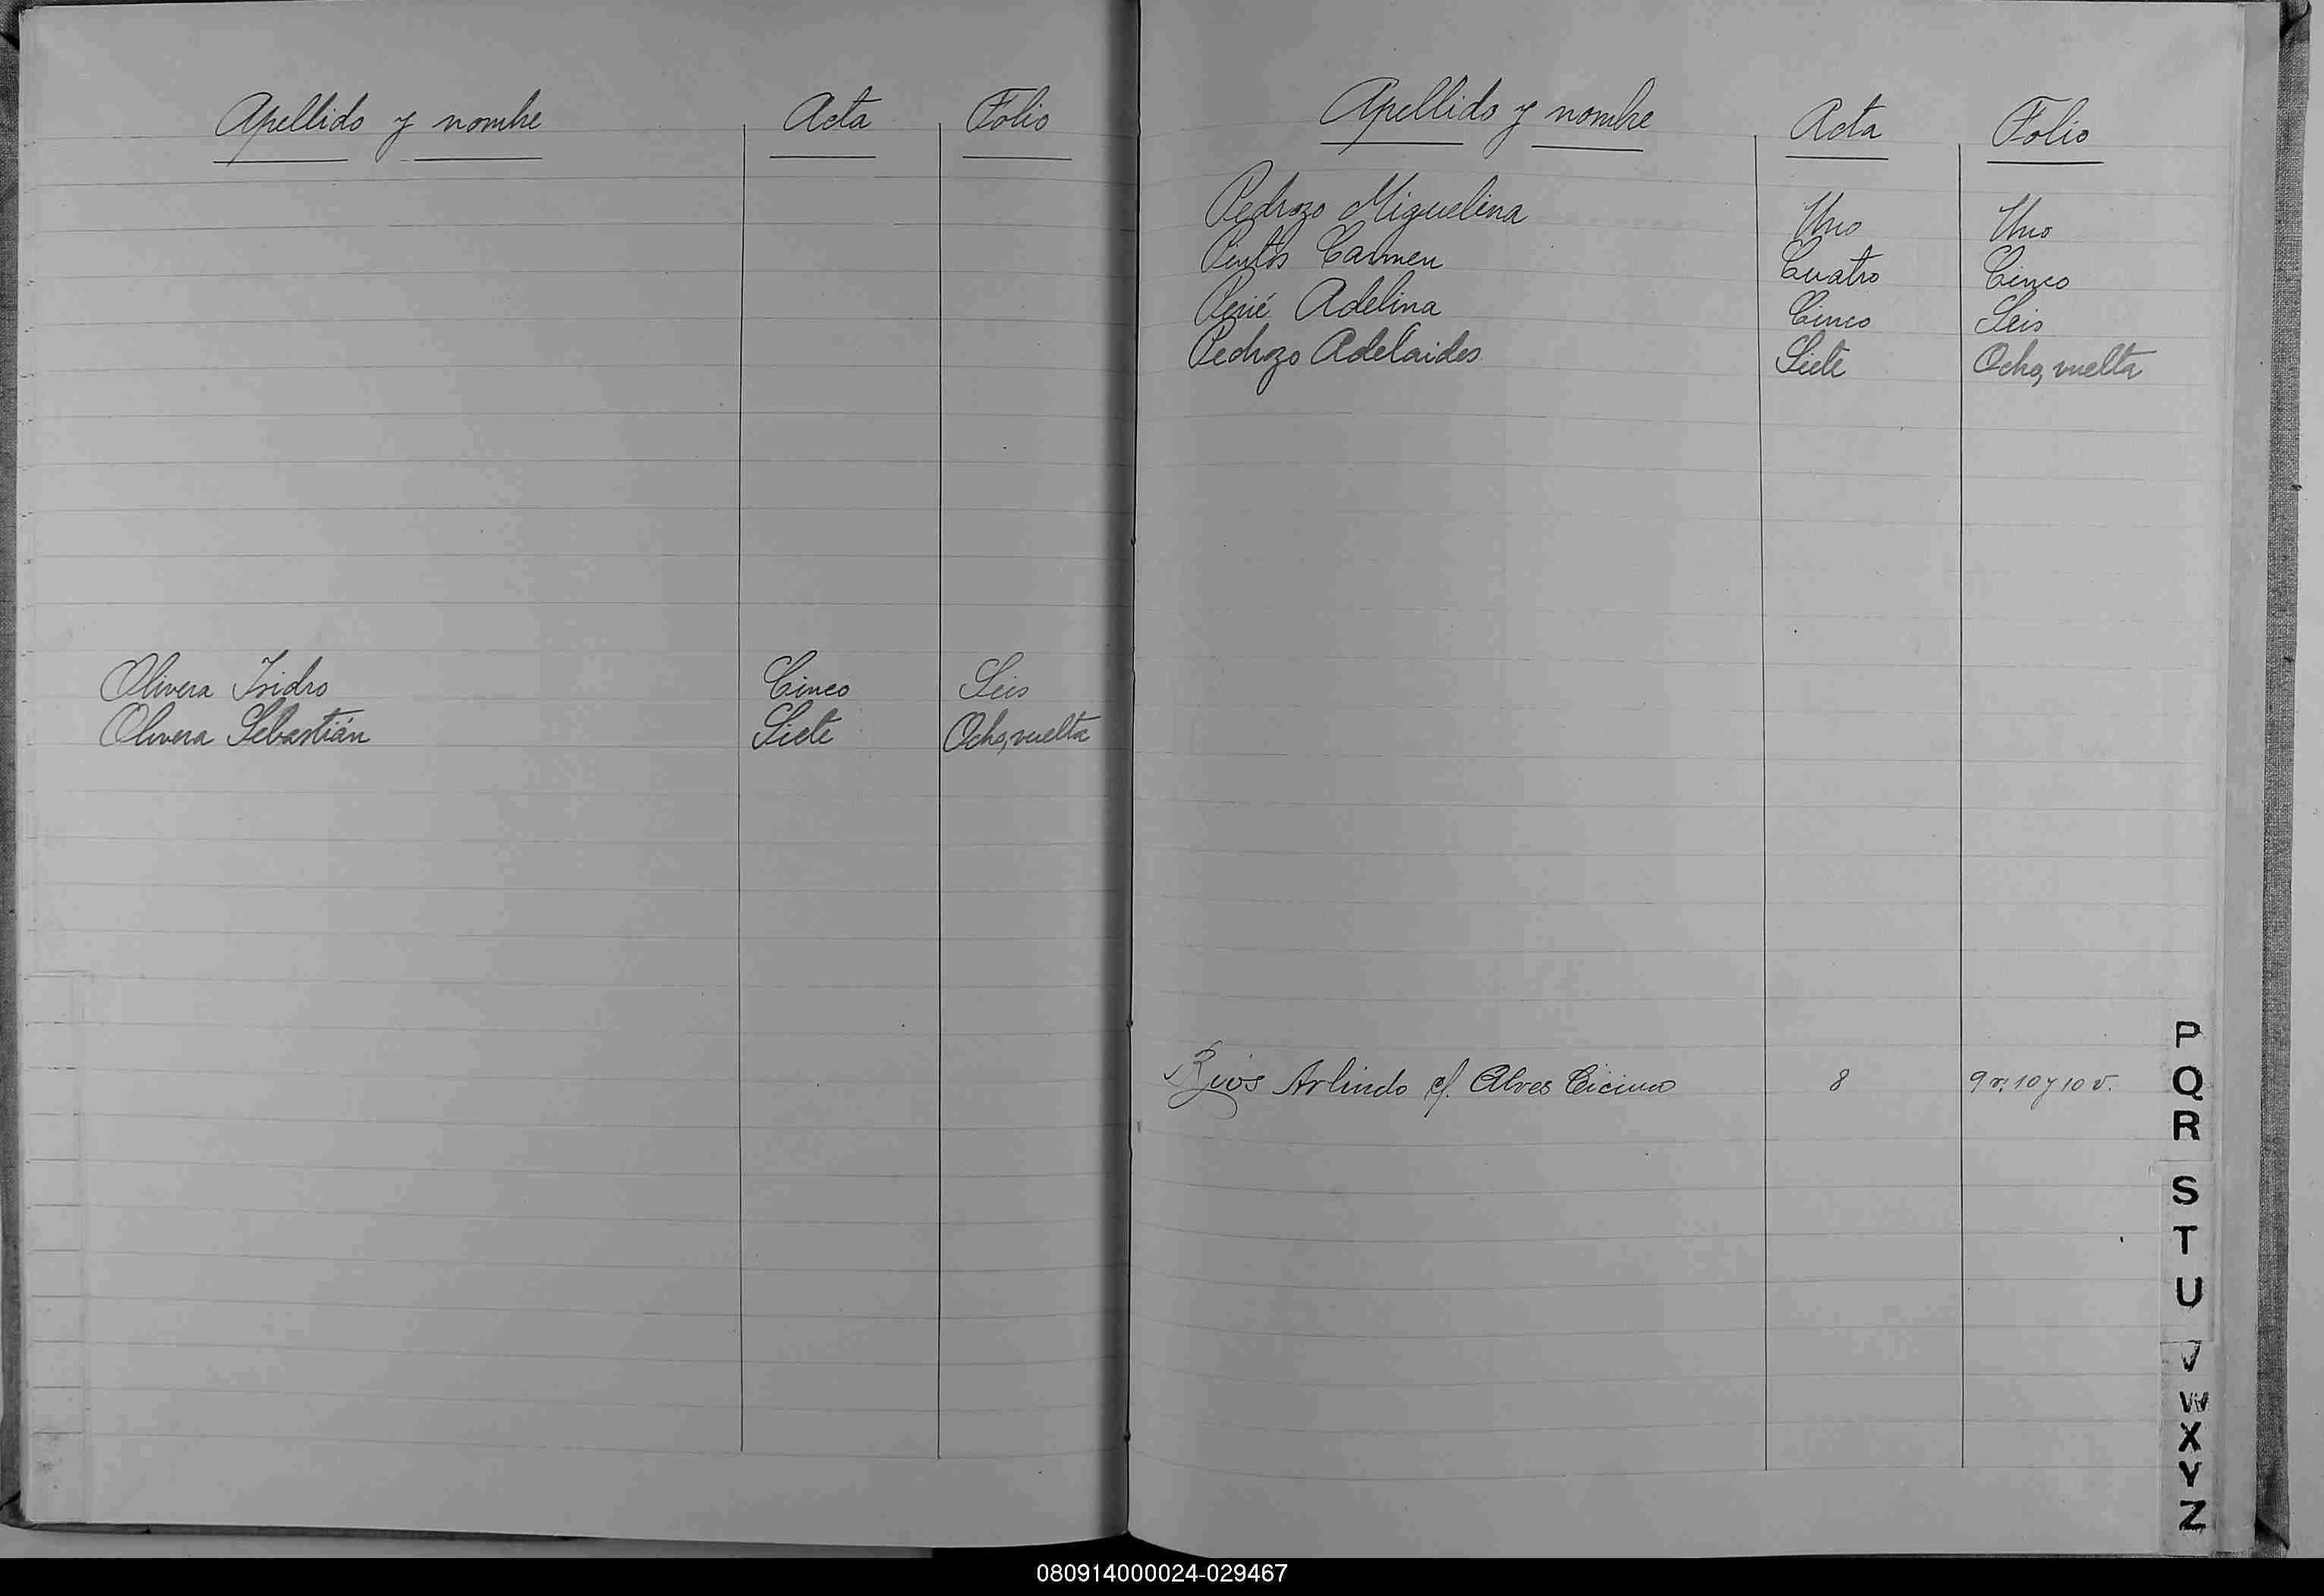 Apellido y nombre Acta Folio
Olivera Isidro Cinco Seis
Olivera Sebastián Siete Ocho, vuelta
Apellido y nombre Acta Folio
Pedrozo Miguelina Uno Uno
Pintos Carmen Cuatro Cinco
Adelina Cinco Seis
Pedrozo Adelaides Siete Ocho, vuelta
Rios Arlindo c/. Alves 8 9 v, 10 y 10 v.
P
Q
R
S
T
U
V
W
X
Y
Z
080914000024-029467